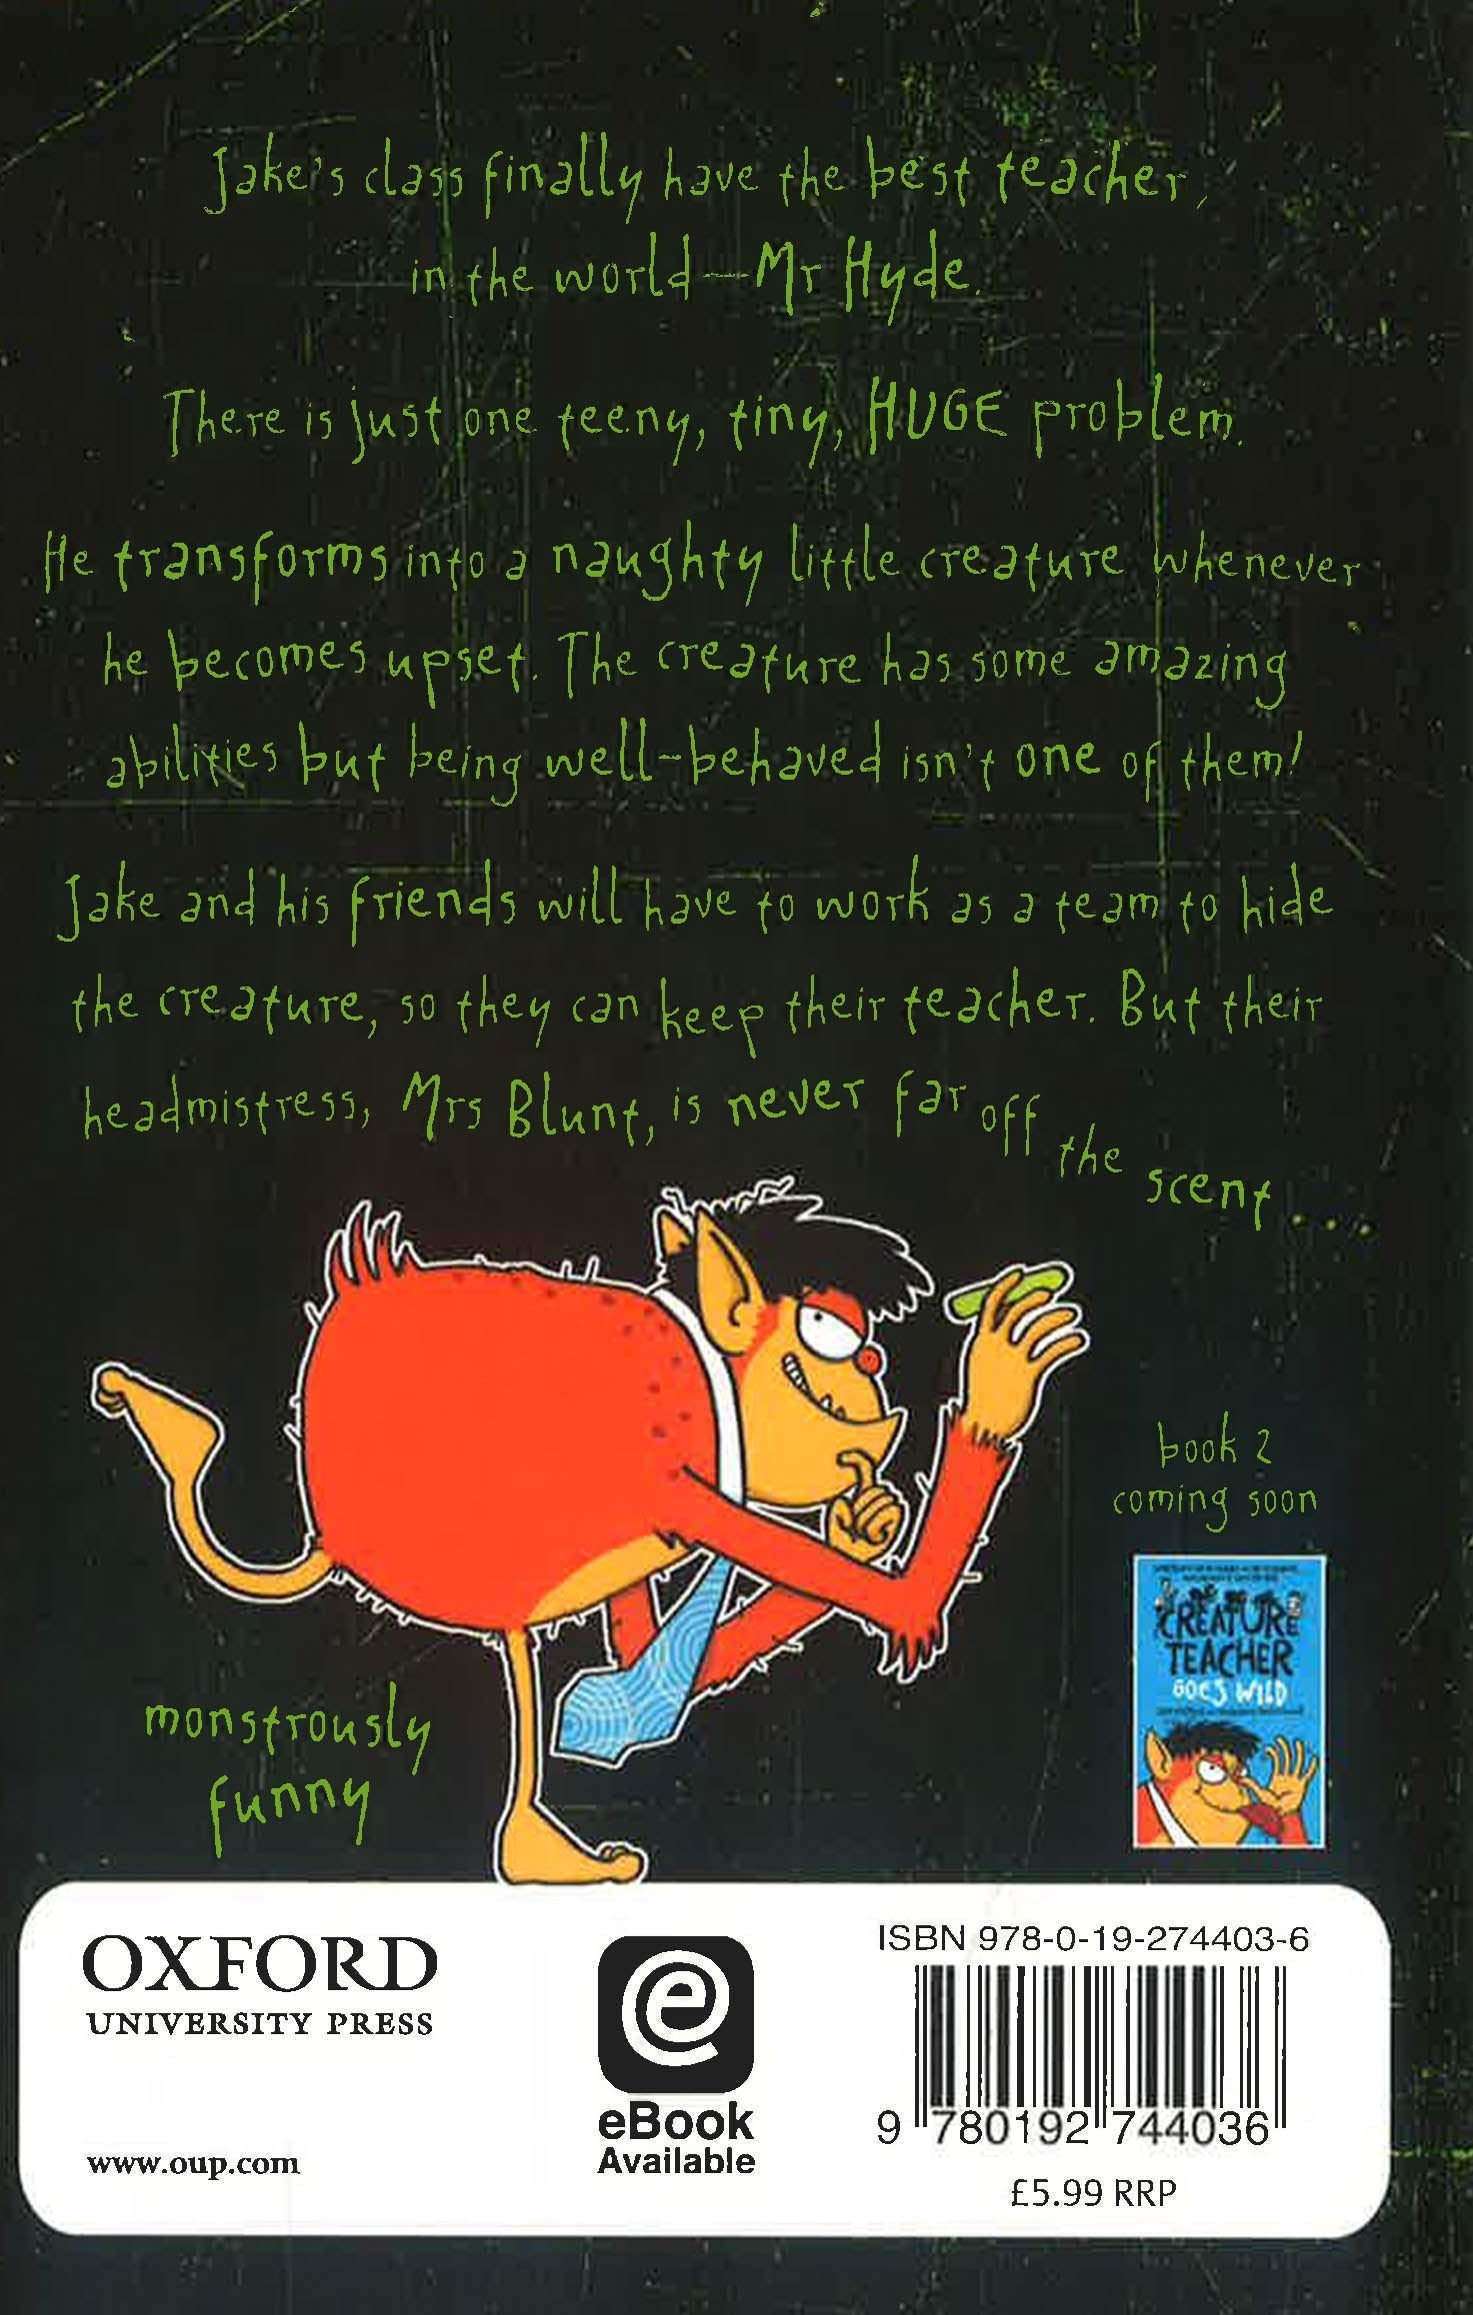 Jake's class finally have the best teacher,
in the world—Mr Hyde.
There is just one teeny, tiny, HUGE problem.
He transforms into a naughty little creature whenever
he becomes upset. The creature has some amazing
abilities but being well-behaved isn't one of them!
Jake and his friends will have to work as a team to hide
the creature, so they can keep their teacher. But their
headmistress, Mrs Blunt, is never far off the scent....
book 2
coming soon
CREATURE
TEACHER
GOES WILD
monstrously
funny
OXFORD
UNIVERSITY PRESS
www.oup.com
e
eBook
Available
ISBN 978-0-19-274403-6
9 780192 744036
£5.99 RRP